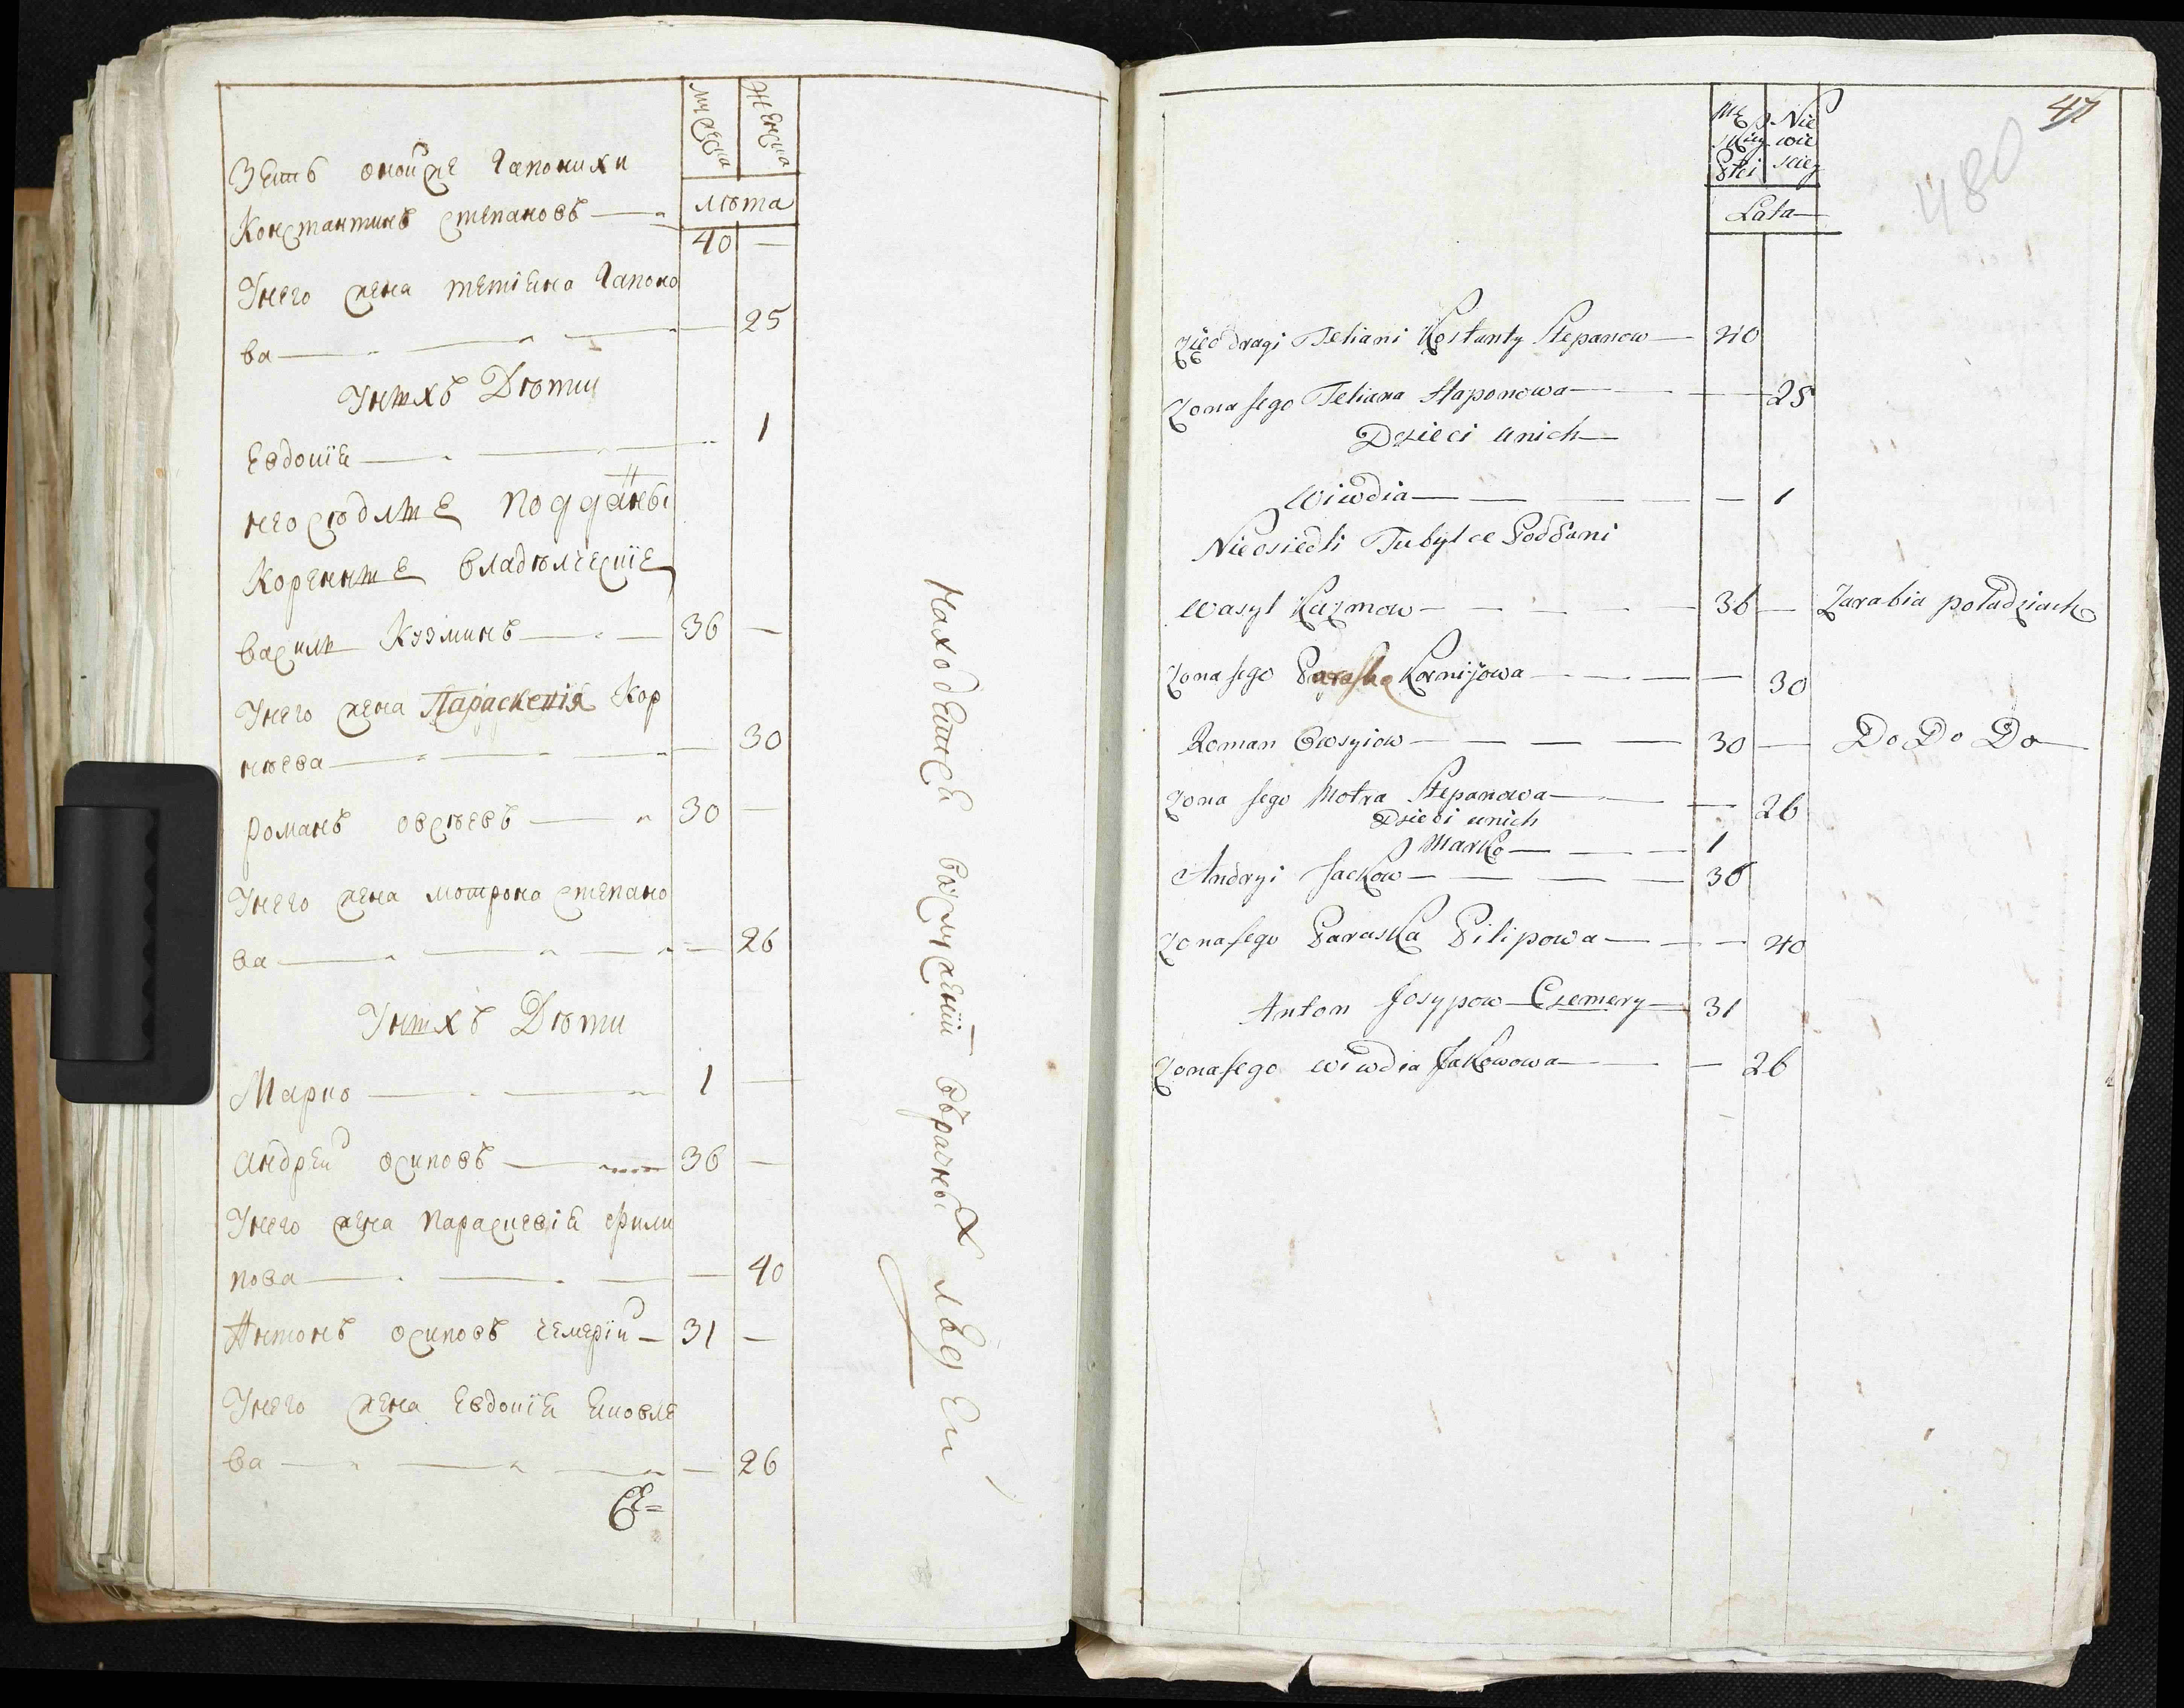 мужеска
женска
лѣта
Зеть оной же Гапонихи
Константинъ Степановъ — 40 —
У него жена Тетіяна Гапоно
ва — — 25
У ныхъ Дѣти
Евдокія — 1
Неоседлые Подданы
Коренные владѣлческіе
Василь Кузминъ — 36 —
У него жена Параскевія Кор
нѣева — — 30
Романъ Овсѣевъ — 30 —
У него жена Мотрона Степано
ва — — 26
У ныхъ Дѣти
Марко — 1 —
Андрей Осиповъ — 36 —
У него жена Параскевія Фили
пова — — 40
Антонъ Осиповъ Чемерій — 31 —
У него жена Евдокія Яковле
ва — — 26
Находятся в услуженіи обрачных людей
47
480
Męz
kiey
Płci
Nie
wie
sciey
Lata
Zięć dragi Tetiani Kostanty Stepanow — 40
Zona jego Tetiana Haponowa — — 25
Dzieci unich
Wiwdia — — 1
Nieosiedli Tubylce Poddani
Wasyl Kuzmow — 36 — Zarabia poładziach
Zona jego Paraska Kornijowa — — 30
Roman Owsyiow — 30 — Do Do Do
Zona jego Motra Stepanowa — — 26
Dzieci unich
Marko — 1
Andryi Jackow — 36
Zona jego Paraska Pilipowa — — 40
Anton Josypow Czemery — 31
Zona jego Wiwdia Jakowowa — — 26